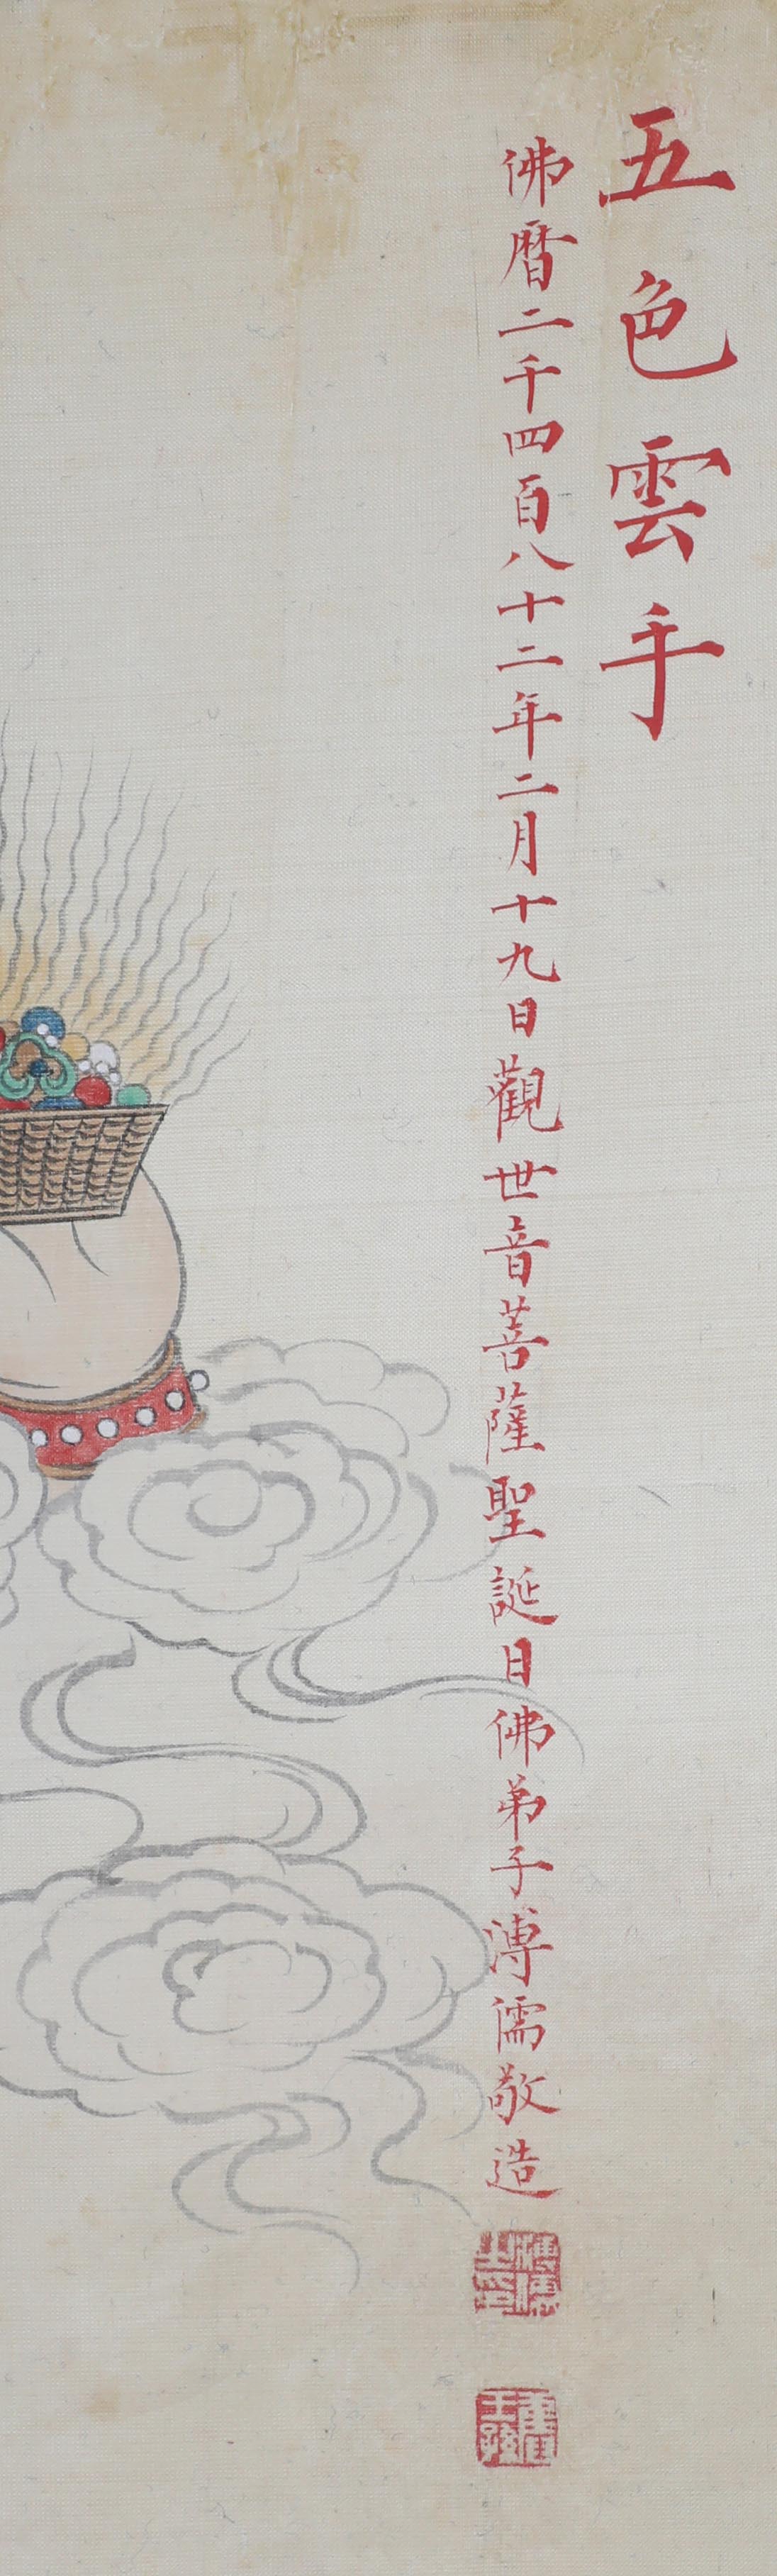 五色雲手
佛曆二千四百八十二年二月十九日觀世音菩薩聖誕日佛弟子溥儒敬造
舊王孫